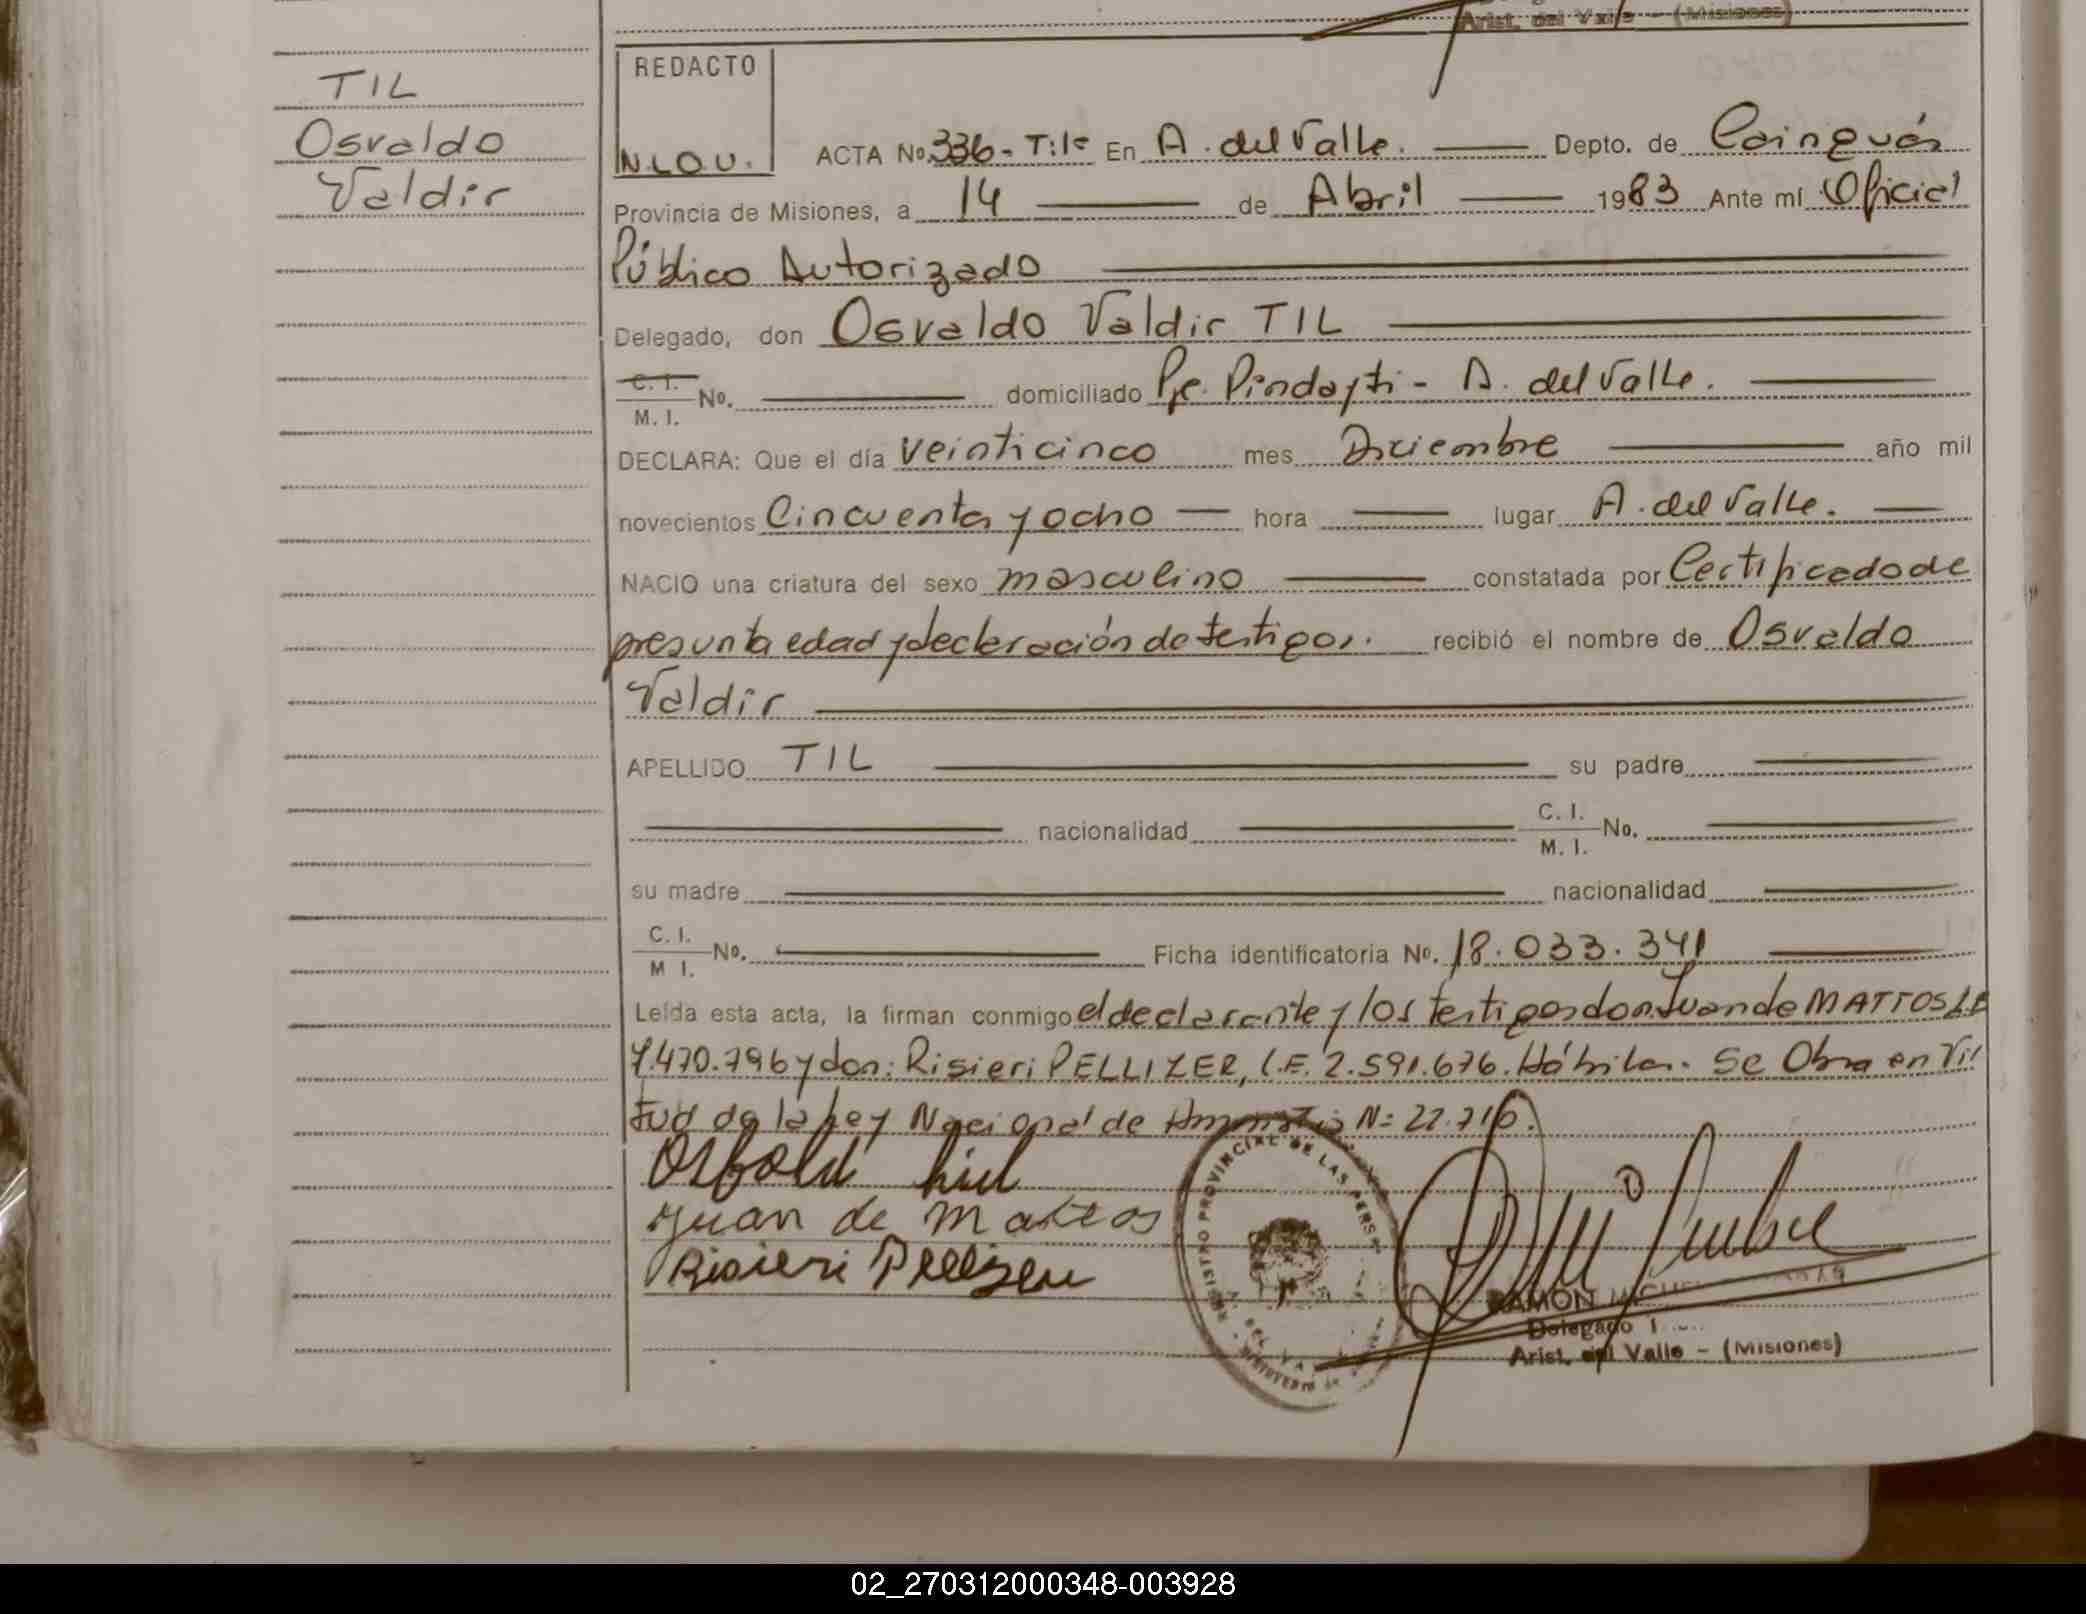 Arist. del Valle - (Misiones)
TIL
Osvaldo
Valdir
REDACTO
N.L.O.U.
ACTA No. 336 - T: 1º En A. del Valle. Depto. de Cainguás
Provincia de Misiones, a 14 de Abril 1983 Ante mí Oficial
Público Autorizado
Delegado, don Osvaldo Valdir TIL
C. I. M. I. No. domiciliado Pje. Pindayti - A. del Valle.
DECLARA: Que el día veinticinco mes Diciembre año mil
novecientos Cincuenta y ocho hora lugar A. del Valle.
NACIO una criatura del sexo masculino constatada por Certificado de
presunta edad y declaración de testigos. recibió el nombre de Osvaldo
Valdir
APELLIDO TIL su padre
nacionalidad C. I. M. I. No.
su madre nacionalidad
C. I. M I. No. Ficha identificatoria No. 18.033.341
Leída esta acta, la firman conmigo el declarante y los testigos don: Juan de MATTOS L.E
7.470.796 y don: Risieri PELLIZER, L.E. 2.591.676. Hábiles. Se Obra en Vir
tud de la Ley Nacional de Amnistia Nº 22.710.
Juan de Mattos
Risieri Pellizer
REGISTRO PROVINCIAL DE LAS PERS
RAMON
Delegado
Arist. del Valle - (Misiones)
02_270312000348-003928